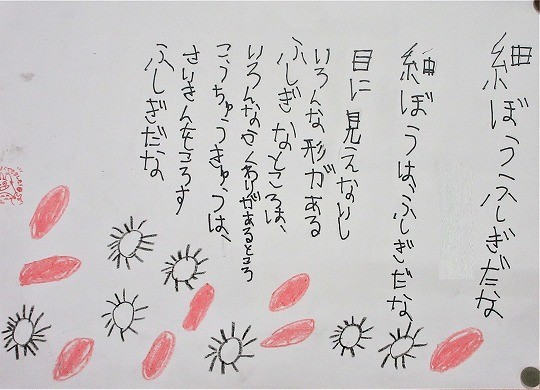 細ぼうふしぎだな
細ぼうは、ふしぎだな
目に見えないし
いろんな形がある
ふしぎなところは、
いろんなやくわりがあるところ
こうちゅうきゅうは、
さいきんをころす
ふしぎだな